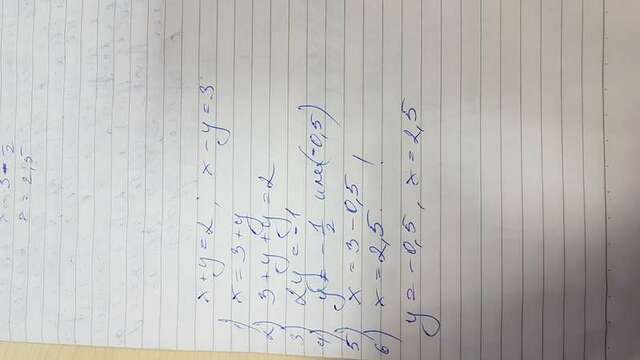 x = 3 - 1/2
x = 2,5
x + y = 2 ; x - y = 3
1) x = 3 + y
2) 3 + y + y = 2
3) 2y = -1
4) y = - 1/2 или (-0,5)
5) x = 3 - 0,5
6) x = 2,5. !
y = -0,5, x = 2,5